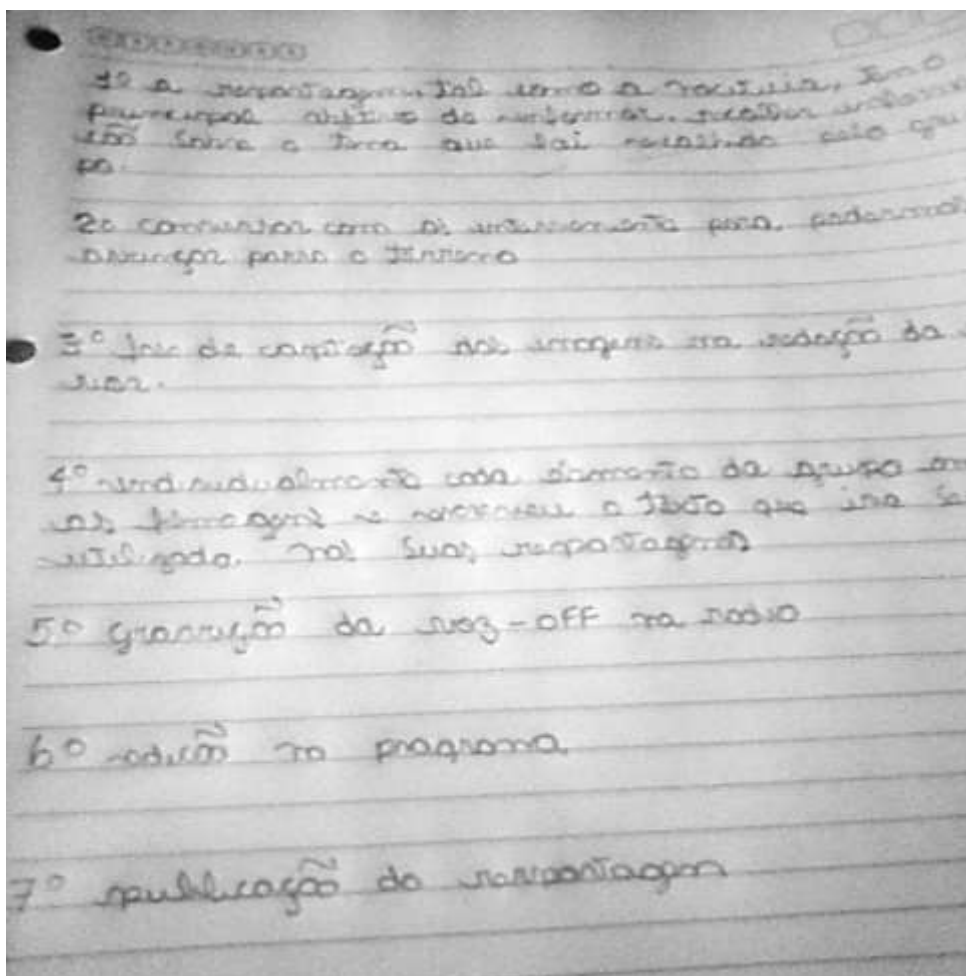 1º a reportagem tal como a noticia, tem o
principal de informar. receber
sobre o tema que foi escolhido pelo gru
po.
2º com os para podermos
avançar para o terreno
3º fase de captação das imagens na redação da
4º individualmente cada elemento do grupo
as e escreveu o texto que ira se
utilizado. nas suas reportagens
5º gravação da voz-off na radio
6º edicão no programa
7º publicação do reportagem